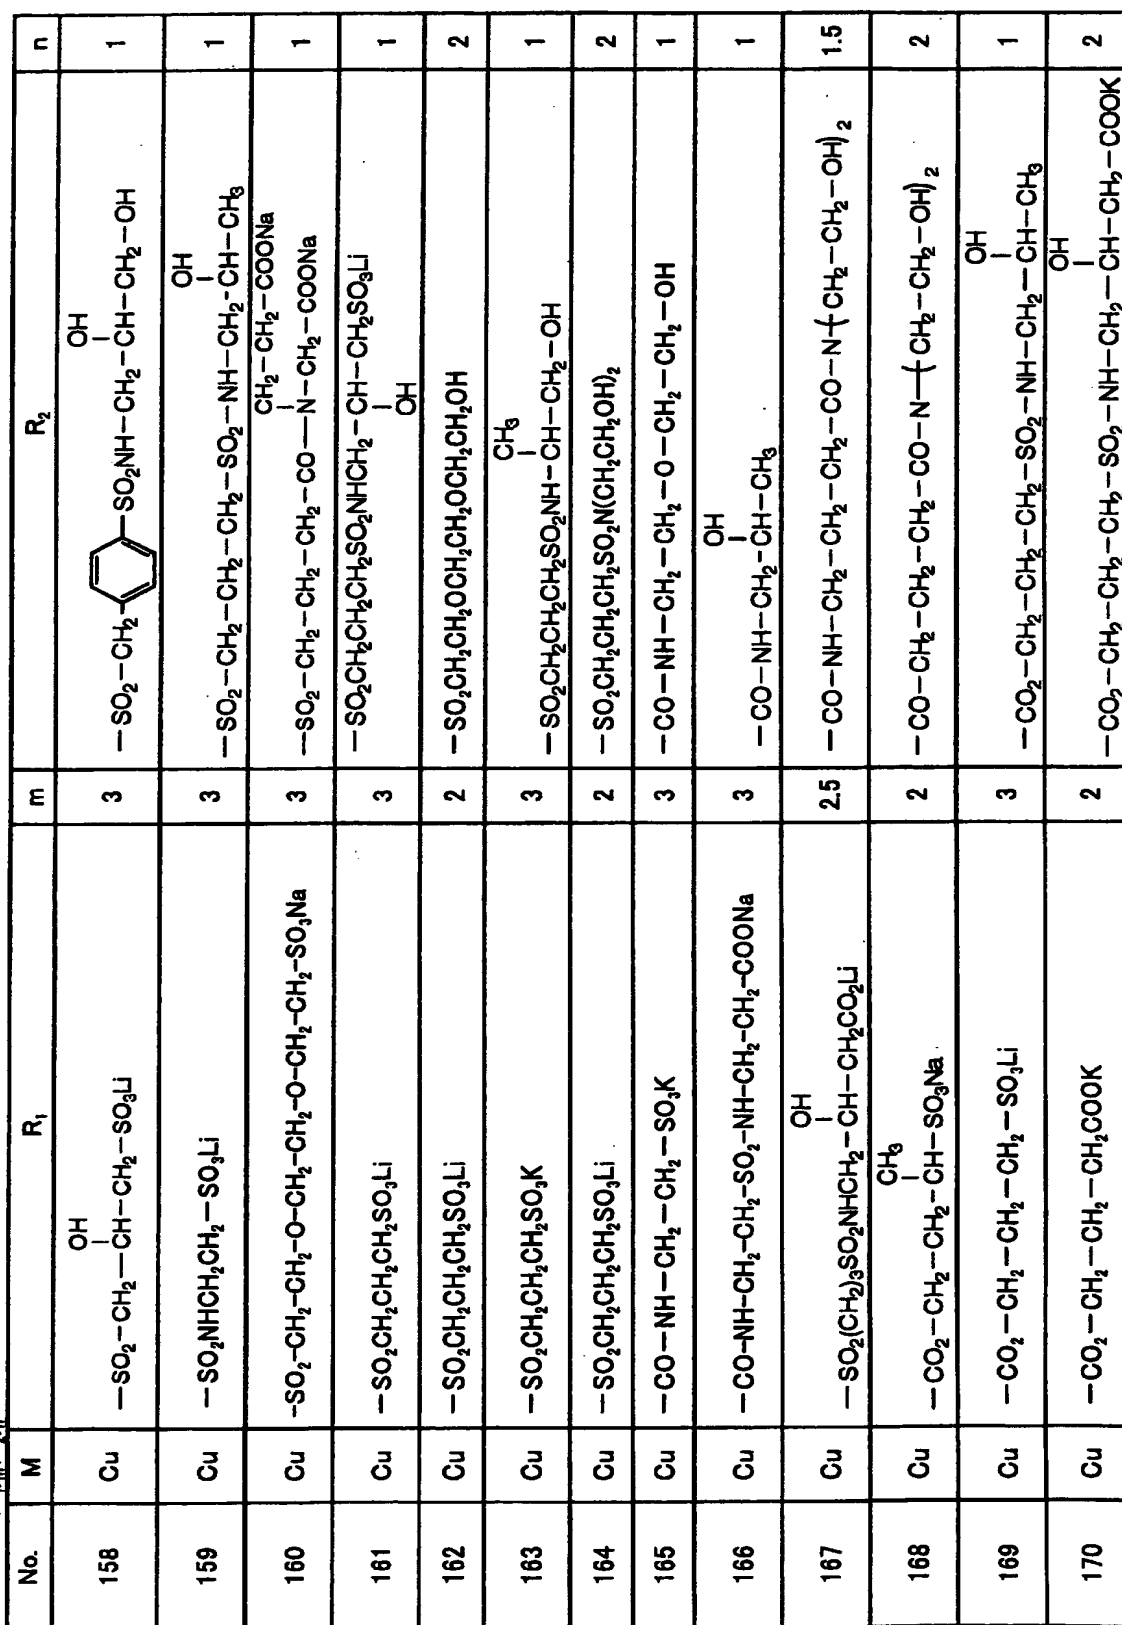 No. M R₁ m R₂ n
158 Cu —SO₂—CH₂—CH(OH)—CH₂—SO₃Li 3 —SO₂—CH₂—C₆H₄—SO₂NH—CH₂—CH(OH)—CH₂—OH 1
159 Cu —SO₂NHCH₂CH₂—SO₃Li 3 —SO₂—CH₂—CH₂—CH₂—SO₂—NH—CH₂-CH(OH)—CH₃ 1
160 Cu —SO₂-CH₂-CH₂-O-CH₂-CH₂-O-CH₂-CH₂-SO₃Na 3 —SO₂—CH₂—CH₂—CH₂—CO—N(CH₂—CH₂—COONa)—CH₂—COONa 1
161 Cu —SO₂CH₂CH₂CH₂SO₃Li 3 —SO₂CH₂CH₂CH₂SO₂NHCH₂—CH(OH)—CH₂SO₃Li 1
162 Cu —SO₂CH₂CH₂CH₂SO₃Li 2 —SO₂CH₂CH₂OCH₂CH₂OCH₂CH₂OH 2
163 Cu —SO₂CH₂CH₂CH₂SO₃K 3 —SO₂CH₂CH₂CH₂SO₂NH—CH(CH₃)—CH₂—OH 1
164 Cu —SO₂CH₂CH₂CH₂SO₃Li 2 —SO₂CH₂CH₂CH₂SO₂N(CH₂CH₂OH)₂ 2
165 Cu —CO—NH—CH₂—CH₂—SO₃K 3 —CO—NH—CH₂—CH₂—O—CH₂—CH₂—OH 1
166 Cu —CO—NH—CH₂—CH₂—SO₂—NH—CH₂—CH₂—COONa 3 —CO—NH—CH₂—CH(OH)—CH₃ 1
167 Cu —SO₂(CH₂)₃SO₂NHCH₂—CH(OH)—CH₂CO₂Li 2.5 —CO—NH—CH₂—CH₂—CH₂—CO—N—(CH₂—CH₂—OH)₂ 1.5
168 Cu —CO₂—CH₂—CH₂—CH(CH₃)—SO₃Na 2 —CO—CH₂—CH₂—CH₂—CO—N—(CH₂—CH₂—OH)₂ 2
169 Cu —CO₂—CH₂—CH₂—CH₂—SO₃Li 3 —CO₂—CH₂—CH₂—CH₂—SO₂—NH—CH₂—CH(OH)—CH₃ 1
170 Cu —CO₂—CH₂—CH₂—CH₂COOK 2 —CO₂—CH₂—CH₂—CH₂—SO₂—NH—CH₂—CH(OH)—CH₂—COOK 2